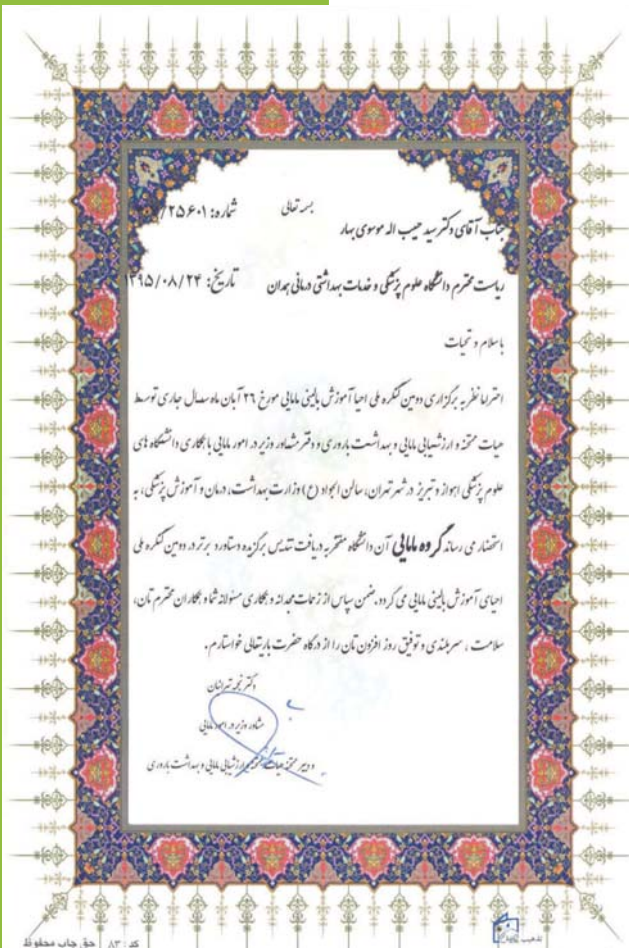 بسمه تعالی
شماره: ۲۵۶۰۱/
جناب آقای دکتر سید حبیب اله موسوی بهار
ریاست محترم دانشگاه علوم پزشکی و خدمات بهداشتی درمانی همدان
تاریخ: ۱۳۹۵/۰۸/۲۴
با سلام و تحیات
احتراما نظر به برگزاری دومین کنگره ملی احیا آموزش بالینی مامایی مورخ ۲۶ آبان ماه سال جاری توسط
هیات ممتحنه و ارزشیابی مامایی و بهداشت باروری و دفتر مشاور وزیر در امور مامایی با همکاری دانشگاه های
علوم پزشکی اهواز و تبریز در شهر تهران، سالن الجواد (ع) وزارت بهداشت، درمان و آموزش پزشکی، به
استحضار می رساند گروه مامایی آن دانشگاه مفتخر به دریافت تندیس برگزیده دستاورد برتر در دومین کنگره ملی
احیای آموزش بالینی مامایی می گردد. ضمن سپاس از زحمات مجدانه و همکاری مسئولانه شما و همکاران محترم تان،
سلامت، سربلندی و توفیق روز افزون تان را از درگاه حضرت باریتعالی خواستارم.
دکتر تهرانیان
مشاور وزیر در امور مامایی
و دبیر ممتحنه هیات ممتحنه و ارزشیابی مامایی و بهداشت باروری
کد: ۸۳ حق چاپ محفوظ
تذهیب